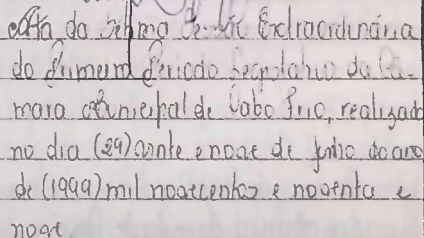 Ata da Sétima Sessão Extraordinária
do Primeiro Periodo Legislativo da Câ-
mara Municipal de Cabo Frio, realizado
no dia (29) vinte e nove de Junho do ano
de (1999) mil novecentos e noventa e
nove.